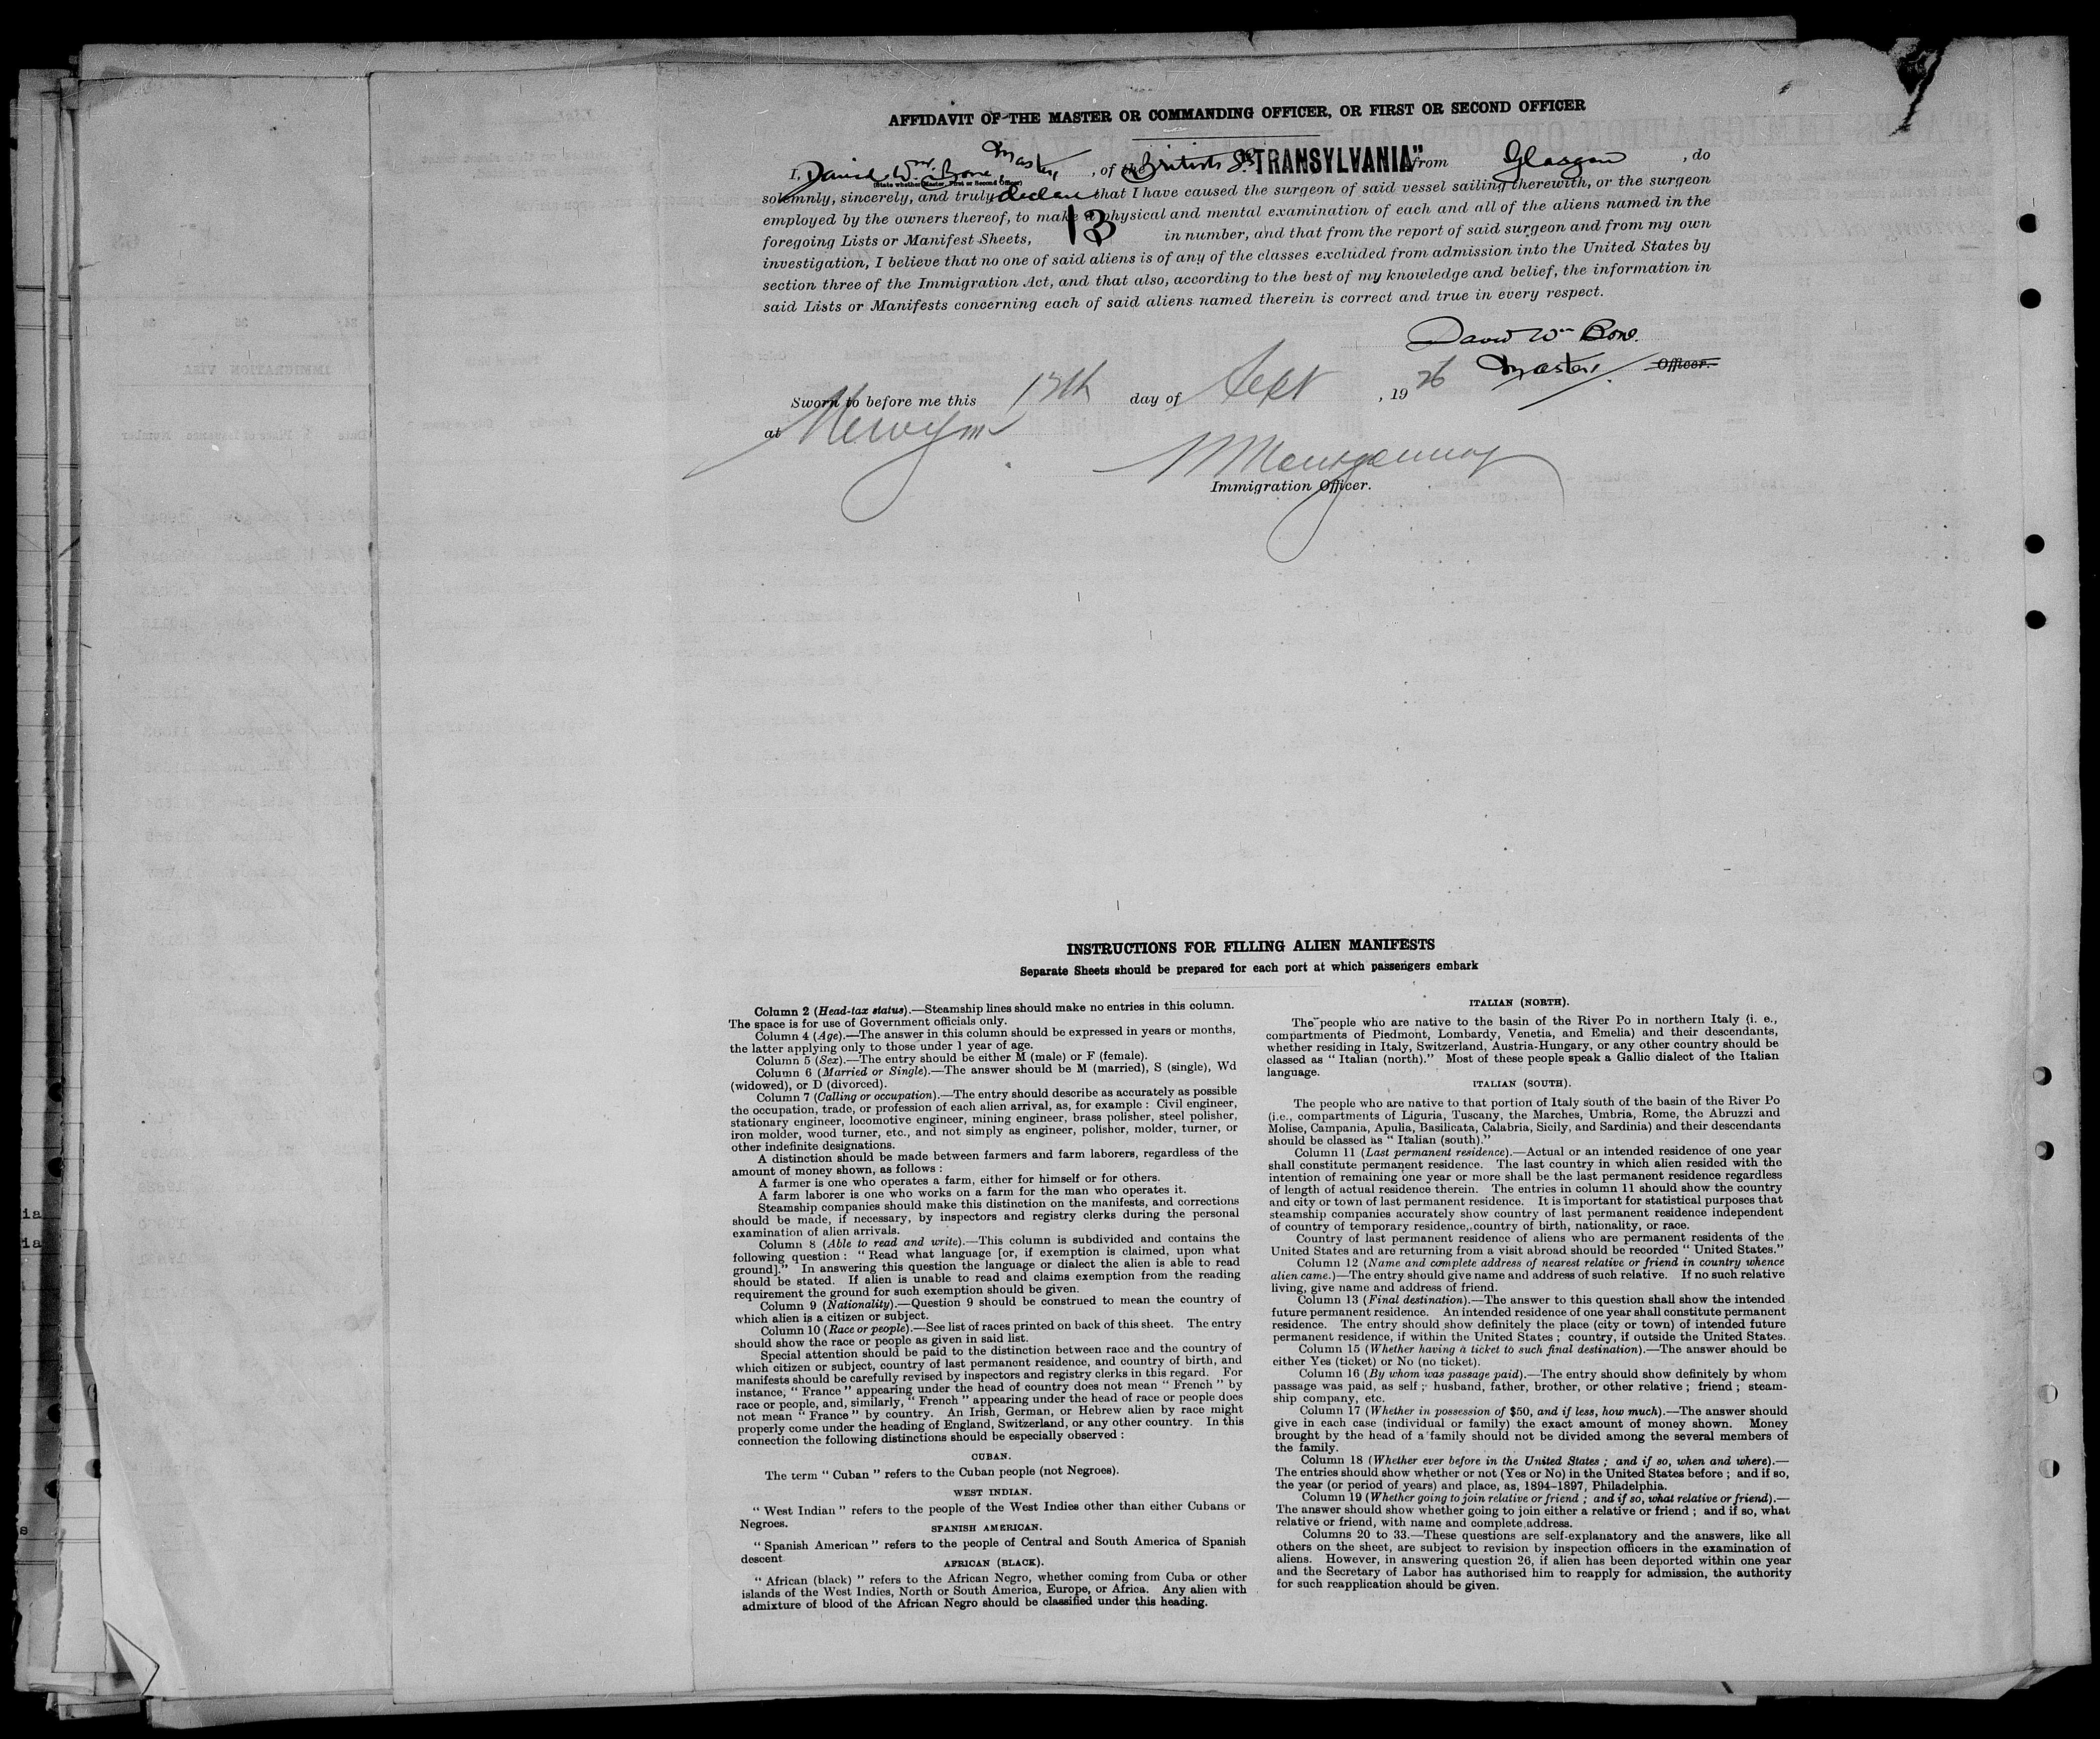 AFFIDAVIT OF THE MASTER OR COMMANDING OFFICER, OR FIRST OR SECOND OFFICER
I, David Wm. Bone, Master, of the British SS. "TRANSYLVANIA" from Glasgow, do
(State whether Master, First or Second Officer)
solemnly, sincerely, and truly declare that I have caused the surgeon of said vessel sailing therewith, or the surgeon
employed by the owners thereof, to make a physical and mental examination of each and all of the aliens named in the
foregoing Lists or Manifest Sheets, 13 in number, and that from the report of said surgeon and from my own
investigation, I believe that no one of said aliens is of any of the classes excluded from admission into the United States by
section three of the Immigration Act, and that also, according to the best of my knowledge and belief, the information in
said Lists or Manifests concerning each of said aliens named therein is correct and true in every respect.
David Wm Bone.
Master. Officer.
Sworn to before me this day of Sept, 1926
at
Immigration Officer.
INSTRUCTIONS FOR FILLING ALIEN MANIFESTS
Separate Sheets should be prepared for each port at which passengers embark
Column 2 (Head-tax status).—Steamship lines should make no entries in this column.
The space is for use of Government officials only.
Column 4 (Age).—The answer in this column should be expressed in years or months,
the latter applying only to those under 1 year of age.
Column 5 (Sex).—The entry should be either M (male) or F (female).
Column 6 (Married or Single).—The answer should be M (married), S (single), Wd
(widowed), or D (divorced).
Column 7 (Calling or occupation).—The entry should describe as accurately as possible
the occupation, trade, or profession of each alien arrival, as, for example : Civil engineer,
stationary engineer, locomotive engineer, mining engineer, brass polisher, steel polisher,
iron molder, wood turner, etc., and not simply as engineer, polisher, molder, turner, or
other indefinite designations.
A distinction should be made between farmers and farm laborers, regardless of the
amount of money shown, as follows :
A farmer is one who operates a farm, either for himself or for others.
A farm laborer is one who works on a farm for the man who operates it.
Steamship companies should make this distinction on the manifests, and corrections
should be made, if necessary, by inspectors and registry clerks during the personal
examination of alien arrivals.
Column 8 (Able to read and write).—This column is subdivided and contains the
following question : " Read what language [or, if exemption is claimed, upon what
ground]." In answering this question the language or dialect the alien is able to read
should be stated. If alien is unable to read and claims exemption from the reading
requirement the ground for such exemption should be given.
Column 9 (Nationality).—Question 9 should be construed to mean the country of
which alien is a citizen or subject.
Column 10 (Race or people).—See list of races printed on back of this sheet. The entry
should show the race or people as given in said list.
Special attention should be paid to the distinction between race and the country of
which citizen or subject, country of last permanent residence, and country of birth, and
manifests should be carefully revised by inspectors and registry clerks in this regard. For
instance, " France " appearing under the head of country does not mean " French " by
race or people, and, similarly, " French " appearing under the head of race or people does
not mean " France " by country. An Irish, German, or Hebrew alien by race might
properly come under the heading of England, Switzerland, or any other country. In this
connection the following distinctions should be especially observed :
CUBAN.
The term " Cuban " refers to the Cuban people (not Negroes).
WEST INDIAN.
" West Indian " refers to the people of the West Indies other than either Cubans or
Negroes.
SPANISH AMERICAN.
" Spanish American " refers to the people of Central and South America of Spanish
descent
AFRICAN (BLACK).
" African (black) " refers to the African Negro, whether coming from Cuba or other
islands of the West Indies, North or South America, Europe, or Africa. Any alien with
admixture of blood of the African Negro should be classified under this heading.
ITALIAN (NORTH).
The people who are native to the basin of the River Po in northern Italy (i. e.,
compartments of Piedmont, Lombardy, Venetia, and Emelia) and their descendants,
whether residing in Italy, Switzerland, Austria-Hungary, or any other country should be
classed as " Italian (north)." Most of these people speak a Gallic dialect of the Italian
language.
ITALIAN (SOUTH).
The people who are native to that portion of Italy south of the basin of the River Po
(i.e., compartments of Liguria, Tuscany, the Marches, Umbria, Rome, the Abruzzi and
Molise, Campania, Apulia, Basilicata, Calabria, Sicily, and Sardinia) and their descendants
should be classed as " Italian (south)."
Column 11 (Last permanent residence).—Actual or an intended residence of one year
shall constitute permanent residence. The last country in which alien resided with the
intention of remaining one year or more shall be the last permanent residence regardless
of length of actual residence therein. The entries in column 11 should show the country
and city or town of last permanent residence. It is important for statistical purposes that
steamship companies accurately show country of last permanent residence independent
of country of temporary residence, country of birth, nationality, or race.
Country of last permanent residence of aliens who are permanent residents of the
United States and are returning from a visit abroad should be recorded " United States."
Column 12 (Name and complete address of nearest relative or friend in country whence
alien came.)—The entry should give name and address of such relative. If no such relative
living, give name and address of friend.
Column 13 (Final destination).—The answer to this question shall show the intended
future permanent residence. An intended residence of one year shall constitute permanent
residence. The entry should show definitely the place (city or town) of intended future
permanent residence, if within the United States ; country, if outside the United States.
Column 15 (Whether having a ticket to such final destination).—The answer should be
either Yes (ticket) or No (no ticket).
Column 16 (By whom was passage paid).—The entry should show definitely by whom
passage was paid, as self ; husband, father, brother, or other relative ; friend ; steam-
ship company, etc.
Column 17 (Whether in possession of $50, and if less, how much).—The answer should
give in each case (individual or family) the exact amount of money shown. Money
brought by the head of a family should not be divided among the several members of
the family.
Column 18 (Whether ever before in the United States ; and if so, when and where).—
The entries should show whether or not (Yes or No) in the United States before ; and if so,
the year (or period of years) and place, as, 1894–1897, Philadelphia.
Column 19 (Whether going to join relative or friend ; and if so, what relative or friend).—
The answer should show whether going to join either a relative or friend ; and if so, what
relative or friend, with name and complete address.
Columns 20 to 33.—These questions are self-explanatory and the answers, like all
others on the sheet, are subject to revision by inspection officers in the examination of
aliens. However, in answering question 26, if alien has been deported within one year
and the Secretary of Labor has authorised him to reapply for admission, the authority
for such reapplication should be given.